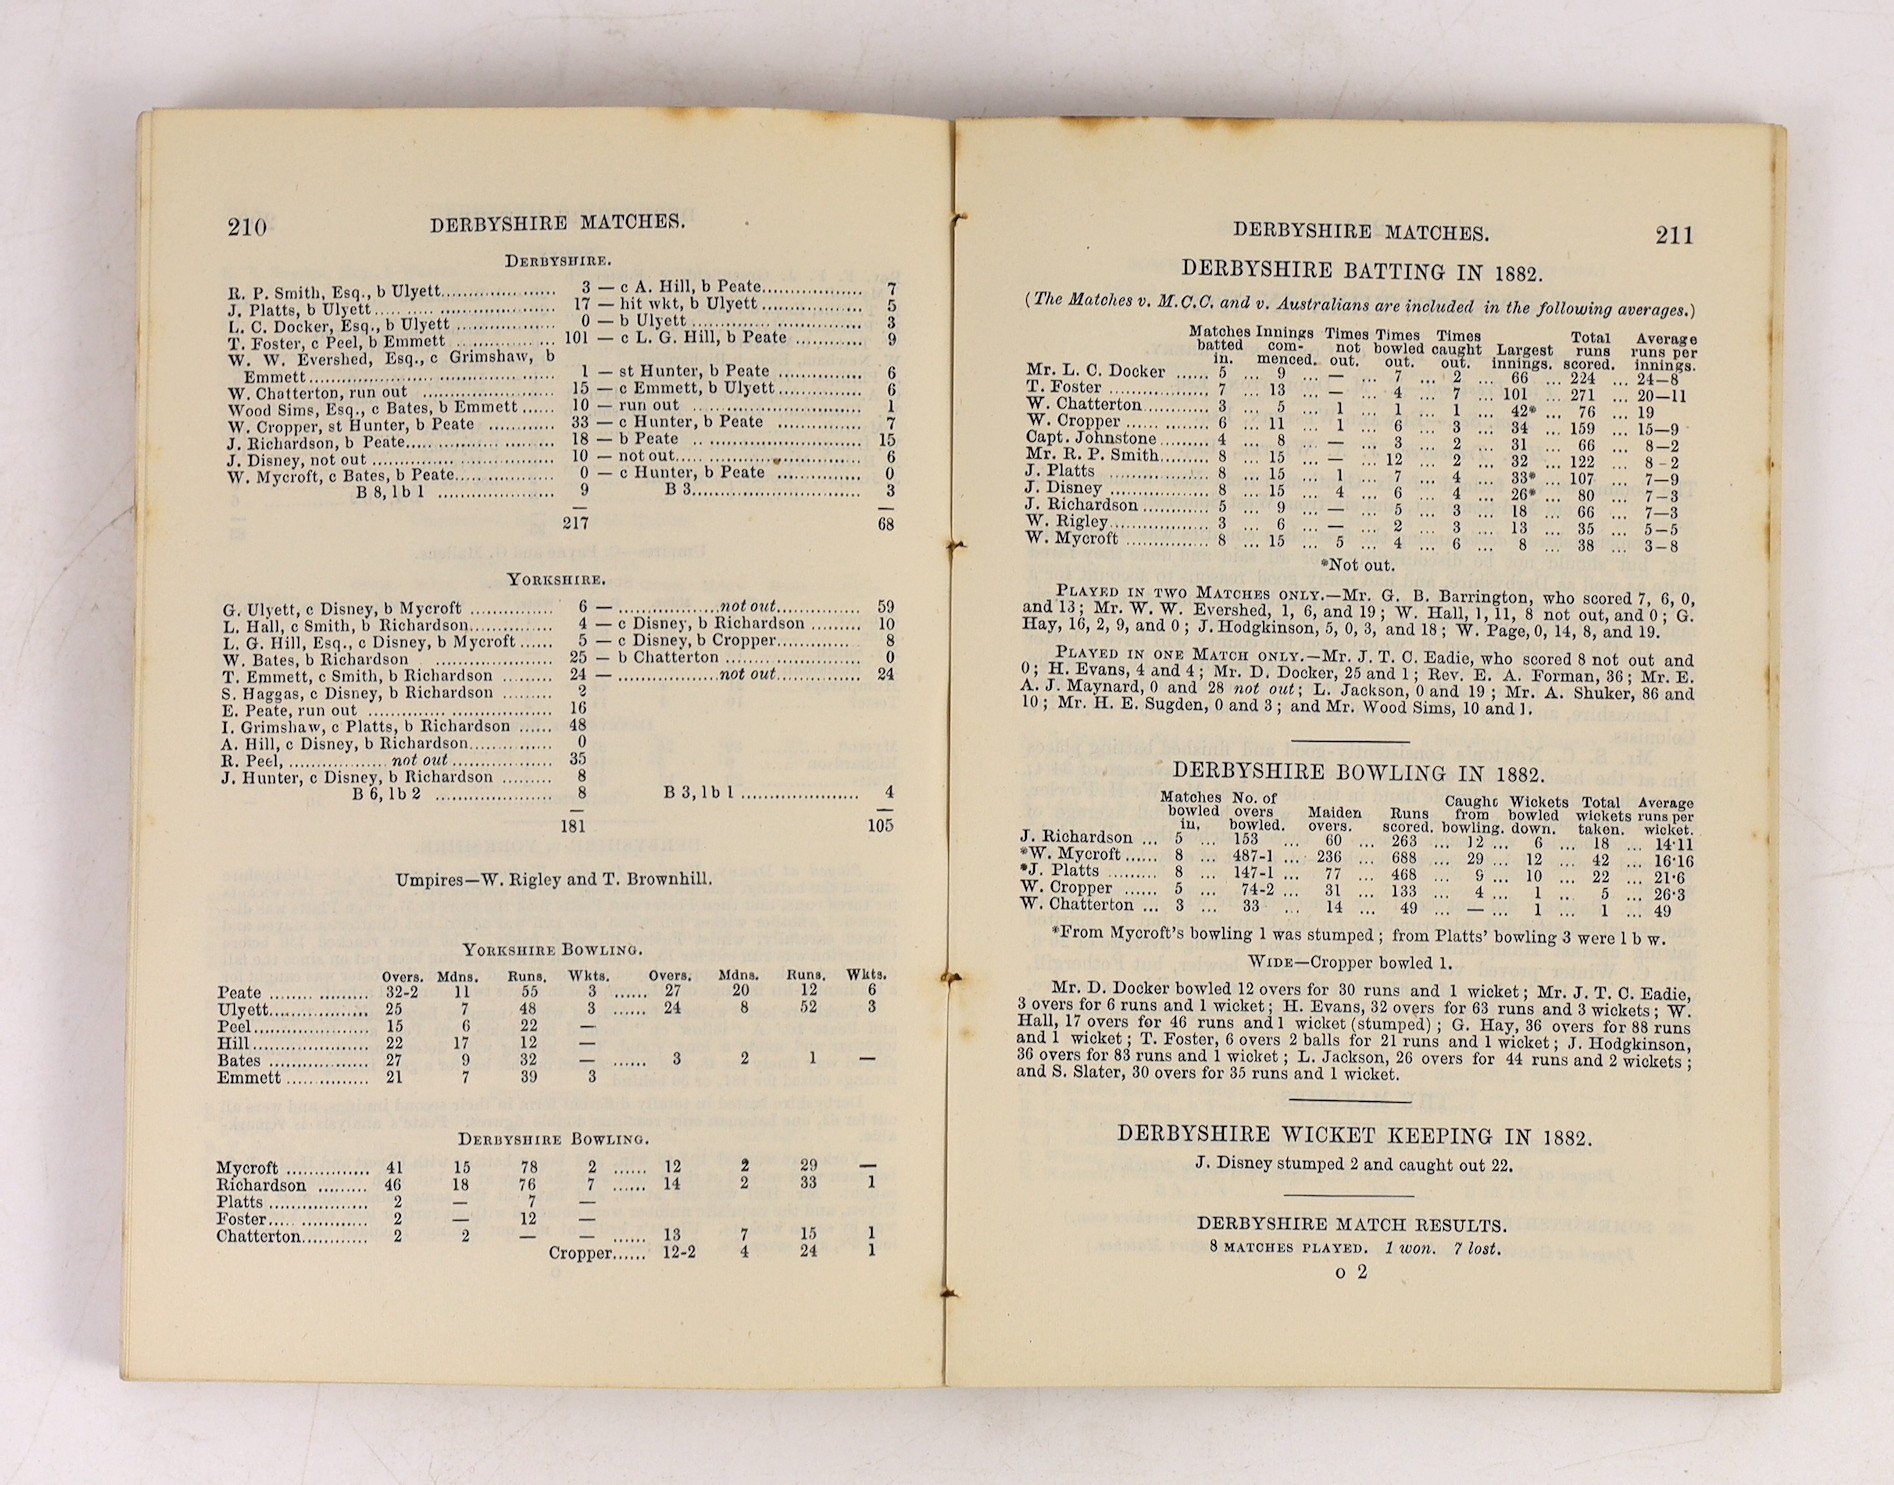 210 DERBYSHIRE MATCHES.
DERBYSHIRE.
R. P. Smith, Esq., b Ulyett.................... 3 — c A. Hill, b Peate.................. 7
J. Platts, b Ulyett................................ 17 — hit wkt, b Ulyett.................. 5
L. C. Docker, Esq., b Ulyett .................. 0 — b Ulyett .............................. 3
T. Foster, c Peel, b Emmett .................. 101 — c L. G. Hill, b Peate ............ 9
W. W. Evershed, Esq., c Grimshaw, b
Emmett............................................ 1 — st Hunter, b Peate ............... 6
W. Chatterton, run out ........................ 15 — c Emmett, b Ulyett............... 6
Wood Sims, Esq., c Bates, b Emmett...... 10 — run out .............................. 1
W. Cropper, st Hunter, b Peate ............ 33 — c Hunter, b Peate ............... 7
J. Richardson, b Peate........................... 18 — b Peate .............................. 15
J. Disney, not out................................. 10 — not out................................. 6
W. Mycroft, c Bates, b Peate.................. 0 — c Hunter, b Peate ............... 0
B 8, l b 1 ..................... 9 B 3.............................. 3
217 68
YORKSHIRE.
G. Ulyett, c Disney, b Mycroft ............... 6 — ..................not out............... 59
L. Hall, c Smith, b Richardson............... 4 — c Disney, b Richardson ......... 10
L. G. Hill, Esq., c Disney, b Mycroft...... 5 — c Disney, b Cropper............. 8
W. Bates, b Richardson ..................... 25 — b Chatterton ........................ 0
T. Emmett, c Smith, b Richardson ......... 24 — ..................not out............... 24
S. Haggas, c Disney, b Richardson ......... 2
E. Peate, run out ................................. 16
I. Grimshaw, c Platts, b Richardson ...... 48
A. Hill, c Disney, b Richardson............... 0
R. Peel, ..................not out.................. 35
J. Hunter, c Disney, b Richardson ......... 8
B 6, l b 2 ..................... 8 B 3, l b 1..................... 4
181 105
Umpires—W. Rigley and T. Brownhill.
YORKSHIRE BOWLING.
Overs. Mdns. Runs. Wkts. Overs. Mdns. Runs. Wkts.
Peate .................. 32-2 11 55 3 ...... 27 20 12 6
Ulyett.................. 25 7 48 3 ...... 24 8 52 3
Peel..................... 15 6 22 —
Hill..................... 22 17 12 —
Bates .................. 27 9 32 — ...... 3 2 1 —
Emmett............... 21 7 39 3
DERBYSHIRE BOWLING.
Mycroft ............... 41 15 78 2 ...... 12 2 29 —
Richardson ......... 46 18 76 7 ...... 14 2 33 1
Platts .................. 2 — 7 —
Foster.................. 2 — 12 —
Chatterton............ 2 2 — — ...... 13 7 15 1
Cropper...... 12-2 4 24 1
DERBYSHIRE MATCHES. 211
DERBYSHIRE BATTING IN 1882.
(The Matches v. M.C.C. and v. Australians are included in the following averages.)
Matches Innings Times Times Times Total Average
batted com- not bowled caught Largest runs runs per
in. menced. out. out. out. innings. scored. innings.
Mr. L. C. Docker ...... 5 ... 9 ... — ... 7 ... 2 ... 66 ... 224 ... 24—8
T. Foster .................. 7 ... 13 ... — ... 4 ... 7 ... 101 ... 271 ... 20—11
W. Chatterton............ 3 ... 5 ... 1 ... 1 ... 1 ... 42* ... 76 ... 19
W. Cropper ............... 6 ... 11 ... 1 ... 6 ... 3 ... 34 ... 159 ... 15—9
Capt. Johnstone......... 4 ... 8 ... — ... 3 ... 2 ... 31 ... 66 ... 8—2
Mr. R. P. Smith......... 8 ... 15 ... — ... 12 ... 2 ... 32 ... 122 ... 8-2
J. Platts .................. 8 ... 15 ... 1 ... 7 ... 4 ... 33* ... 107 ... 7—9
J. Disney .................. 8 ... 15 ... 4 ... 6 ... 4 ... 26* ... 80 ... 7-3
J. Richardson ............ 5 ... 9 ... — ... 5 ... 3 ... 18 ... 66 ... 7—3
W. Rigley.................. 3 ... 6 ... — ... 2 ... 3 ... 13 ... 35 ... 5—5
W. Mycroft ............... 8 ... 15 ... 5 ... 4 ... 6 ... 8 ... 38 ... 3—8
*Not out.
PLAYED IN TWO MATCHES ONLY.—Mr. G. B. Barrington, who scored 7, 6, 0,
and 13; Mr. W. W. Evershed, 1, 6, and 19; W. Hall, 1, 11, 8 not out, and 0; G.
Hay, 16, 2, 9, and 0; J. Hodgkinson, 5, 0, 3, and 18; W. Page, 0, 14, 8, and 19.
PLAYED IN ONE MATCH ONLY.—Mr. J. T. C. Eadie, who scored 8 not out and
0; H. Evans, 4 and 4; Mr. D. Docker, 25 and 1; Rev. E. A. Forman, 36; Mr. E.
A. J. Maynard, 0 and 28 not out; L. Jackson, 0 and 19; Mr. A. Shuker, 86 and
10; Mr. H. E. Sugden, 0 and 3; and Mr. Wood Sims, 10 and 1.
DERBYSHIRE BOWLING IN 1882.
Matches No. of Caught Wickets Total Average
bowled overs Maiden Runs from bowled wickets runs per
in. bowled. overs. scored. bowling. down. taken. wicket.
J. Richardson ... 5 ... 153 ... 60 ... 263 ... 12 ... 6 ... 18 ... 14·11
*W. Mycroft...... 8 ... 487-1 ... 236 ... 688 ... 29 ... 12 ... 42 ... 16·16
*J. Platts ......... 8 ... 147-1 ... 77 ... 468 ... 9 ... 10 ... 22 ... 21·6
W. Cropper ...... 5 ... 74-2 ... 31 ... 133 ... 4 ... 1 ... 5 ... 26·3
W. Chatterton ... 3 ... 33 ... 14 ... 49 ... — ... 1 ... 1 ... 49
*From Mycroft's bowling 1 was stumped; from Platts' bowling 3 were l b w.
WIDE—Cropper bowled 1.
Mr. D. Docker bowled 12 overs for 30 runs and 1 wicket; Mr. J. T. C. Eadie,
3 overs for 6 runs and 1 wicket; H. Evans, 32 overs for 63 runs and 3 wickets; W.
Hall, 17 overs for 46 runs and 1 wicket (stumped); G. Hay, 36 overs for 88 runs
and 1 wicket; T. Foster, 6 overs 2 balls for 21 runs and 1 wicket; J. Hodgkinson,
36 overs for 83 runs and 1 wicket; L. Jackson, 26 overs for 44 runs and 2 wickets;
and S. Slater, 30 overs for 35 runs and 1 wicket.
DERBYSHIRE WICKET KEEPING IN 1882.
J. Disney stumped 2 and caught out 22.
DERBYSHIRE MATCH RESULTS.
8 MATCHES PLAYED. 1 won. 7 lost.
O 2